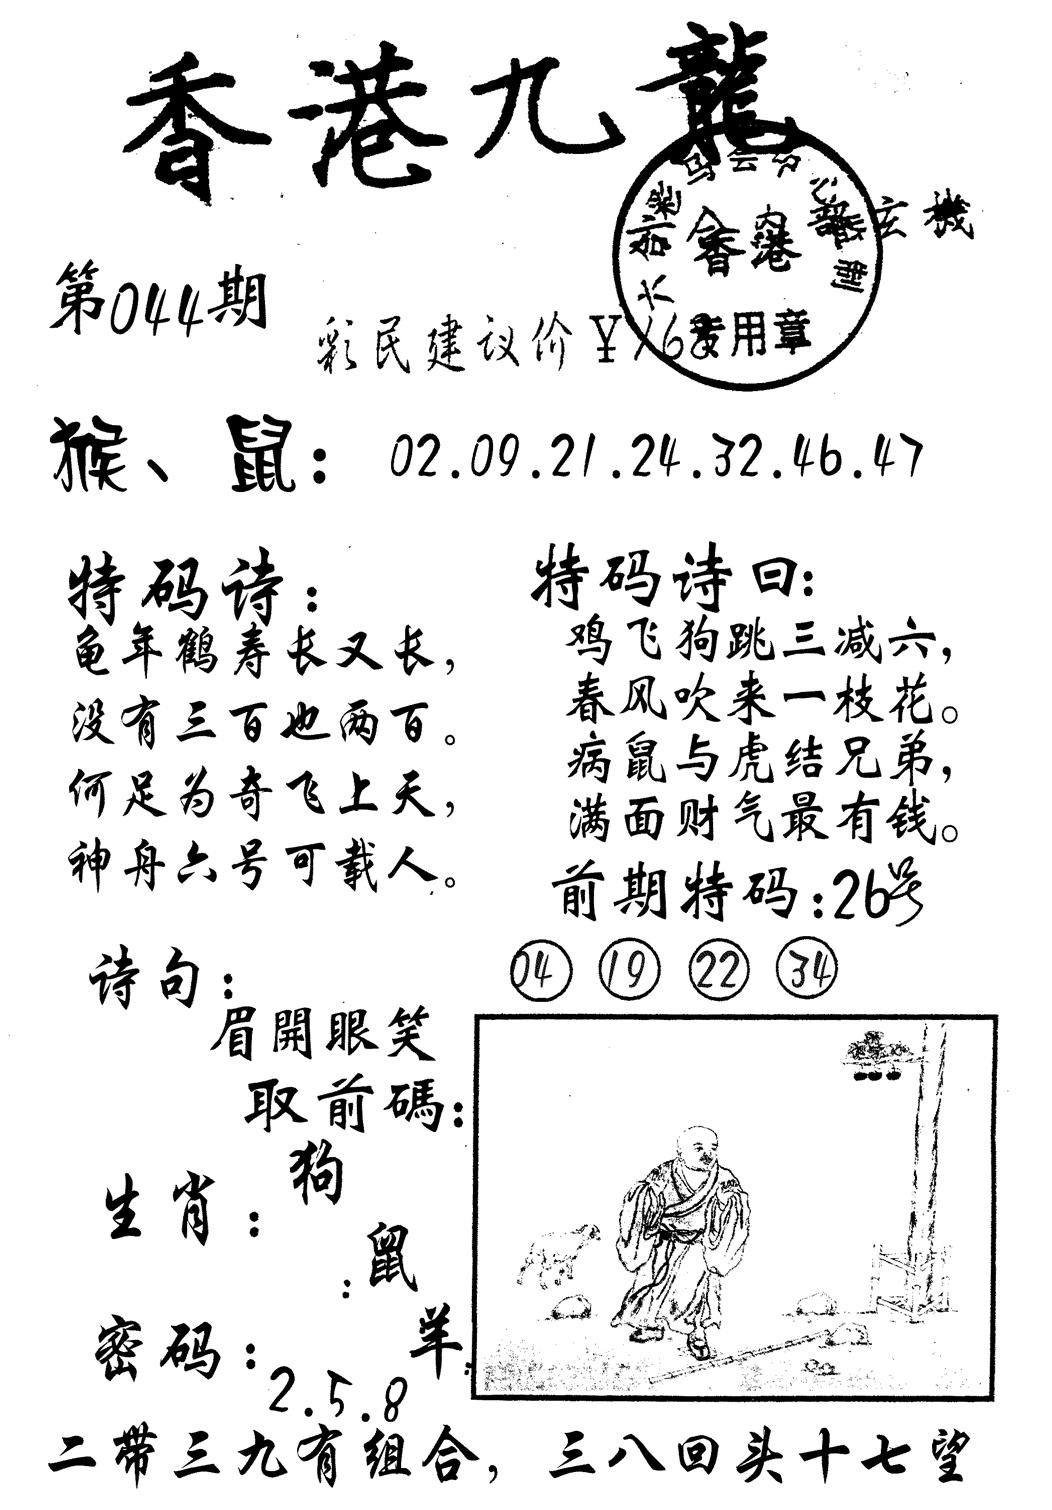 香港九龍
玄機
香港
专用章
第044期
彩民建议价¥168
猴、鼠：02.09.21.24.32.46.47
特码诗：
龟年鹤寿长又长，
没有三百也两百。
何足为奇飞上天，
神舟六号可载人。
特码诗曰：
鸡飞狗跳三减六，
春风吹来一枝花。
病鼠与虎结兄弟，
满面财气最有钱。
前期特码：26号
04 19 22 34
诗句：
眉開眼笑
取前碼：
生肖：
狗
鼠
羊
密码：
2.5.8
二带三九有组合，三八回头十七望